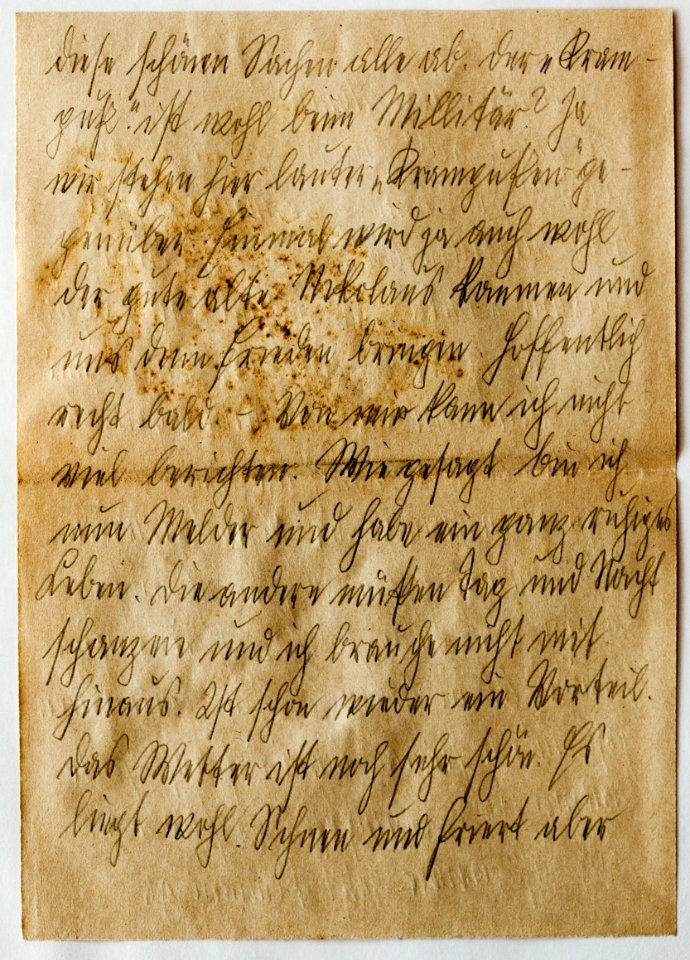 diese schönen Sachen alle ab. Der „Kram-
puß" ist wohl beim Millitär? Ja
wir stehen hier lauter „Krampußen" ge-
genüber. Einmal wird ja auch wohl
der gute alte Nikolaus kommen und
uns denn Frieden bringen. Hoffentlich
recht bald. – Von mir kann ich nicht
viel berichten. Wie gesagt bin ich
nun Melder und habe ein ganz ruhiges
Leben. Die andere müßen Tag und Nacht
schanzen und ich brauche nicht mit
hinaus. Ist schon wieder ein Vorteil.
Das Wetter ist noch sehr schön. Es
liegt wohl Schnee und friert aber